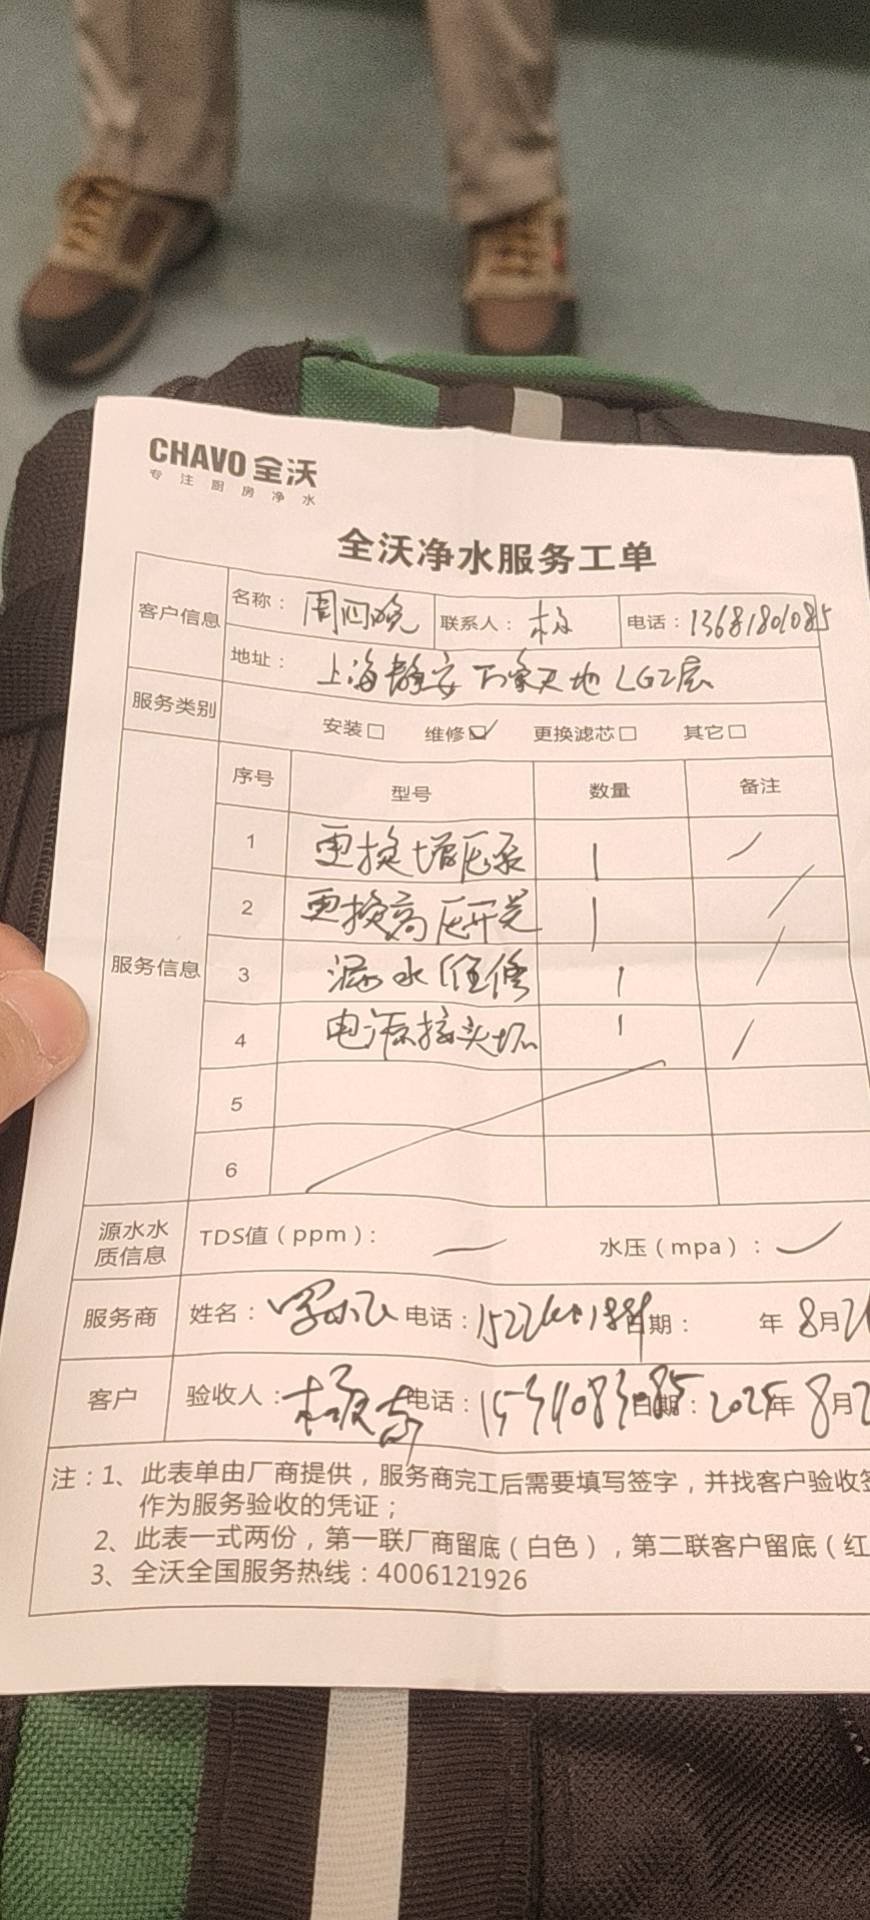 CHAVO 全沃
专注厨房净水
全沃净水服务工单
客户信息 名称： 周四晚 联系人： 电话：13681801085
地址： 上海静安 天地 LG2层
服务类别 安装□ 维修☑ 更换滤芯□ 其它□
服务信息 序号 型号 数量 备注
1 更换增压泵 1 /
2 更换高压开关 1 /
3 漏水维修 1 /
4 电源接头坏 1 /
5
6
源水水质信息 TDS值（ppm）： — 水压（mpa）：
服务商 姓名： 电话： 日期： 年 8月
客户 验收人： 电话： 日期：2025年 8月2
注：1、此表单由厂商提供，服务商完工后需要填写签字，并找客户验收签
作为服务验收的凭证；
2、此表一式两份，第一联厂商留底（白色），第二联客户留底（红
3、全沃全国服务热线：4006121926